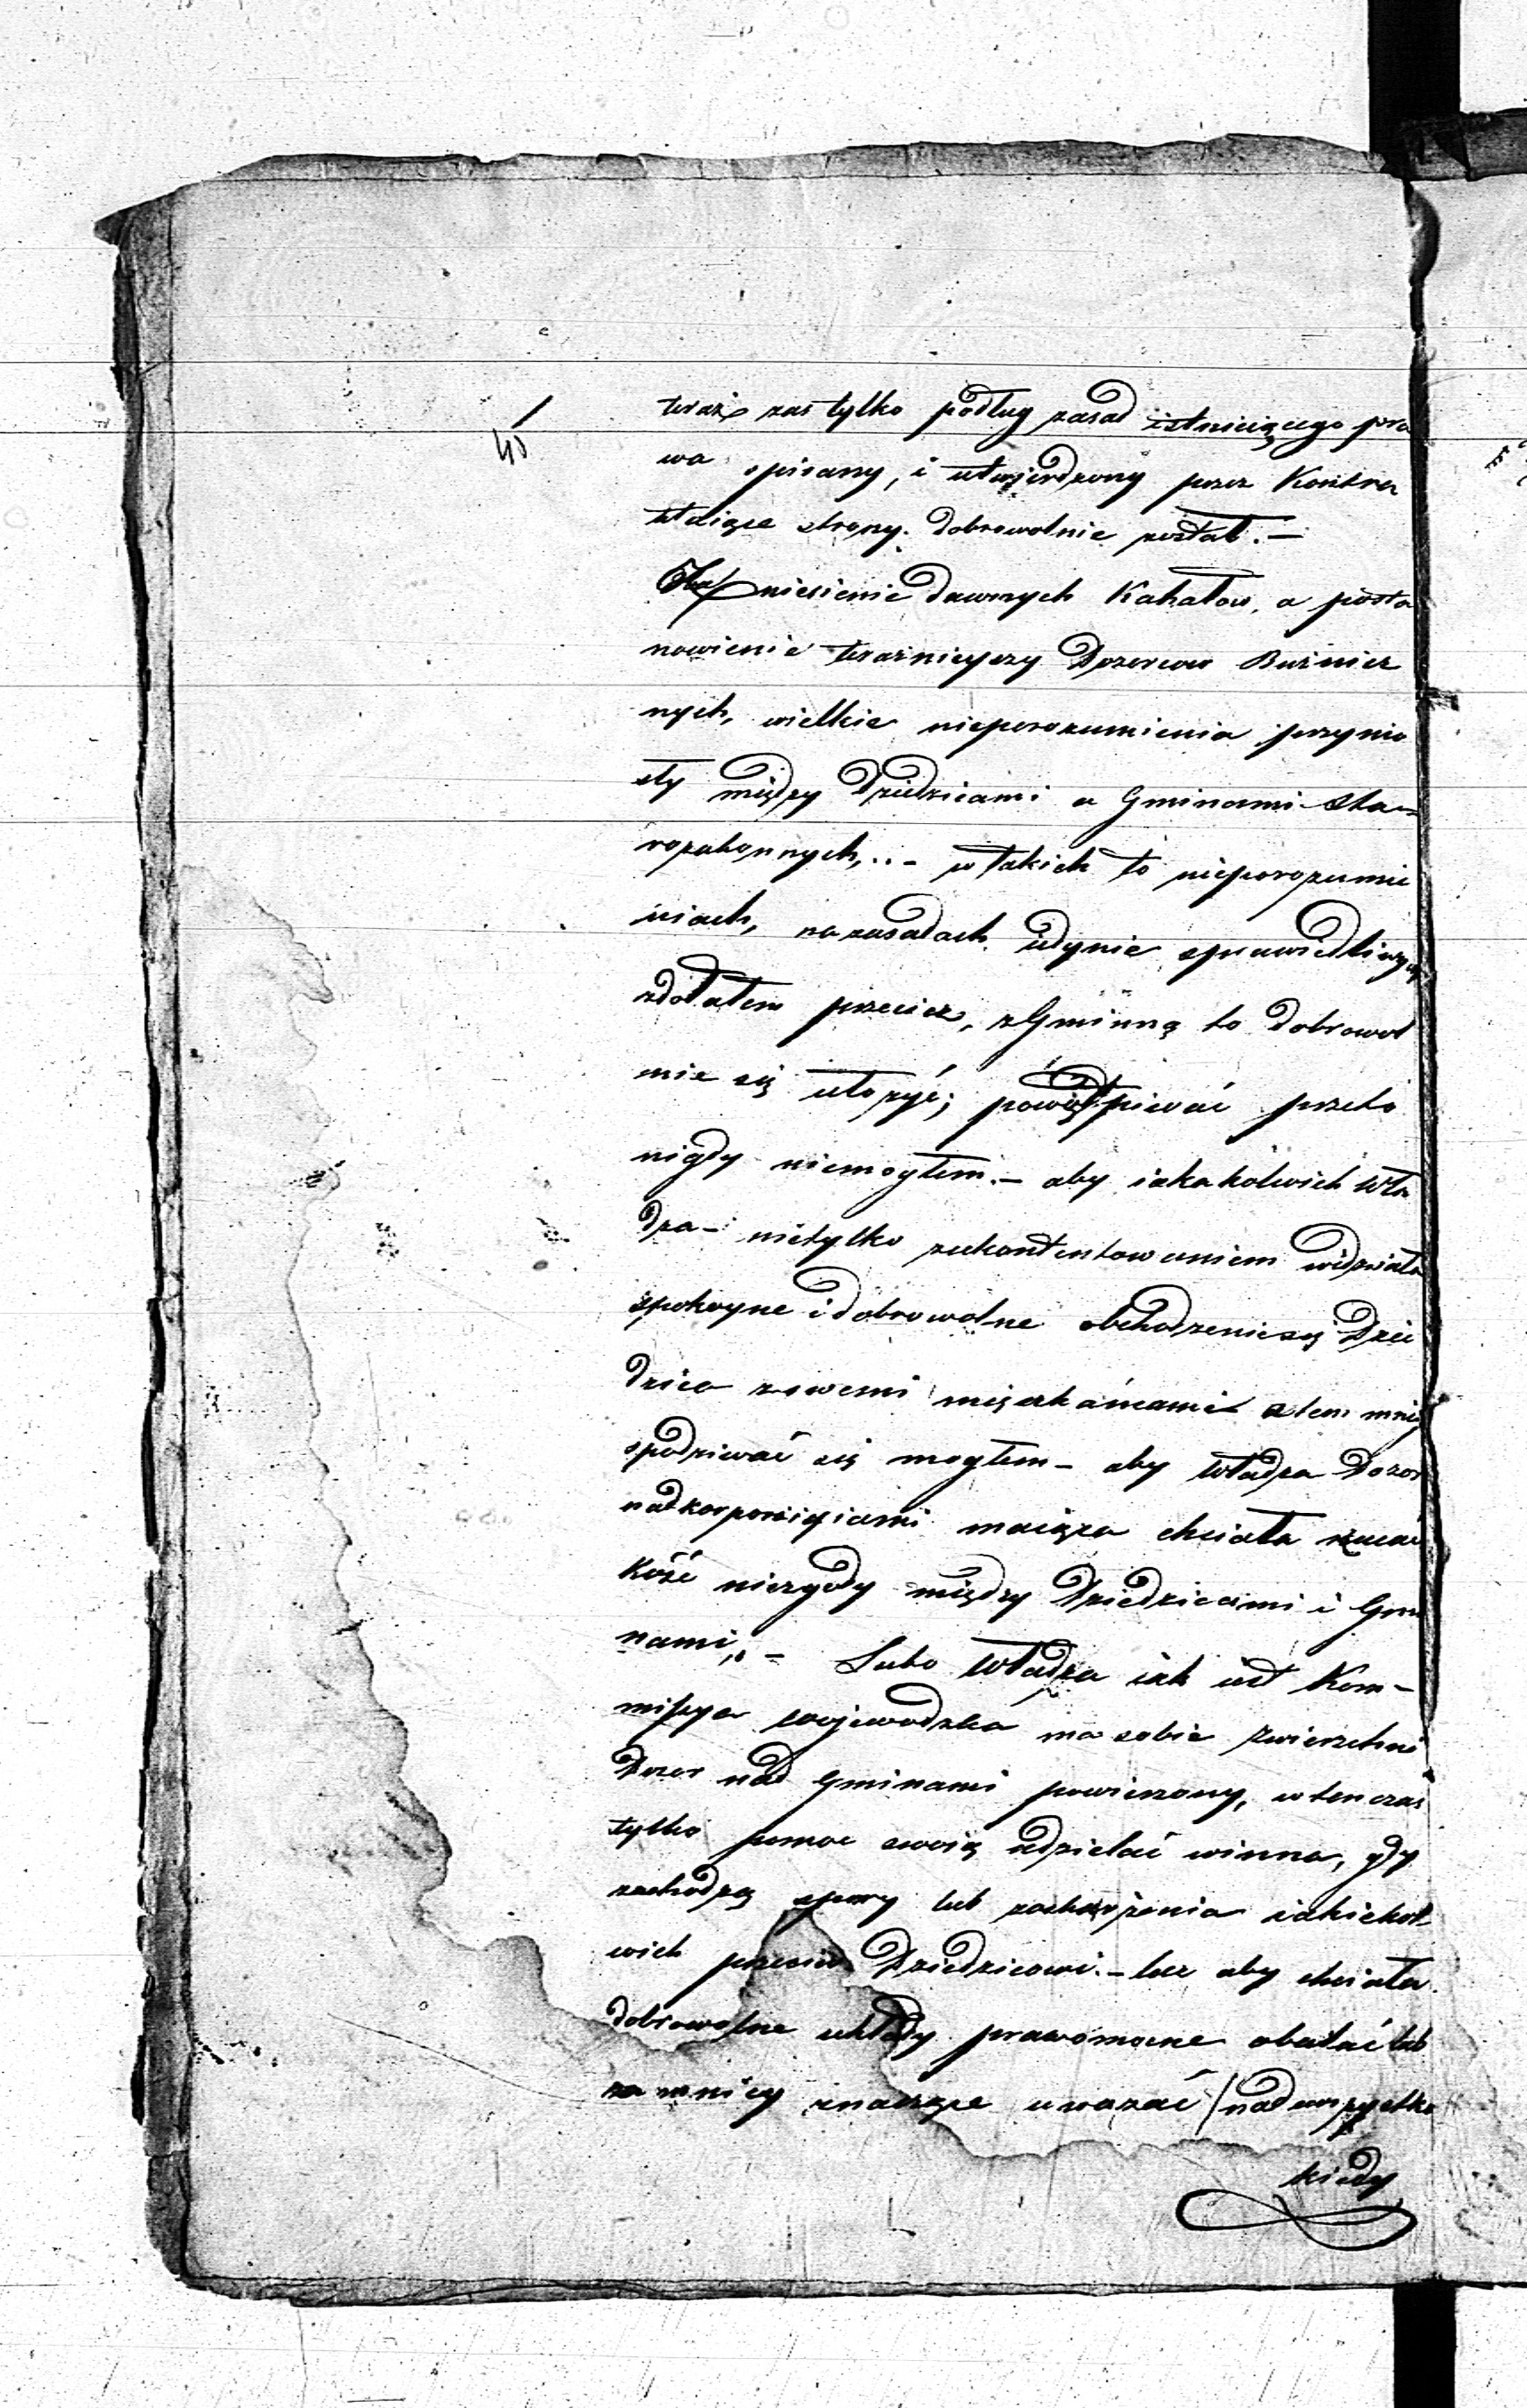 40
teraz zas tylko podług zasad istnieiącego pra
wa spisany, i utwjerdzony przez Kontra
ktuiące strony dobrowolnie został. —
niesienie dawnych Kahałow, a posta
nowienie teraznieyszy Dozorow Bużnicz
nych, wielkie nieporozumienia przynio
sły między Dziedzicami a Gminami Sta=
rozakonnych, .. – w takich to nieporozumie
niach, na zasadach iedynie sprawiedliwych
zdołałem przeciez, z Gminną to dobrowol
nie się ułozyć; powątpiewać przeto
nigdy niemogłem. – aby iakakolwiek Wła
dza – nietylko zukontentowaniem widziała
spokoyne i dobrowolne obchodzenie się Dzie
dzica z swemi mięszkańcami a tem mniej
spodziewać się mogłem – aby Władza Dozor
nad korporacyiami maiąca chciała rzucać
Kość niezgody między Dziedzicami i Gmi
nami, . – Lubo Władza iak iest Kom–
missya Wojewodzka ma sobie zwierzchni
Dozor nad Gminami powierzony, w ten czas
tylko pomoc swoią udzielać winna, gdy
zachodzą spory lub zaskarzenia iakiekol
wiek przeciw Dziedzicowi. – lecz aby chciała
dobrowolne układy prawomocne obalać lub
za mniey znaczące uwazać / nad wszystko
kiedy